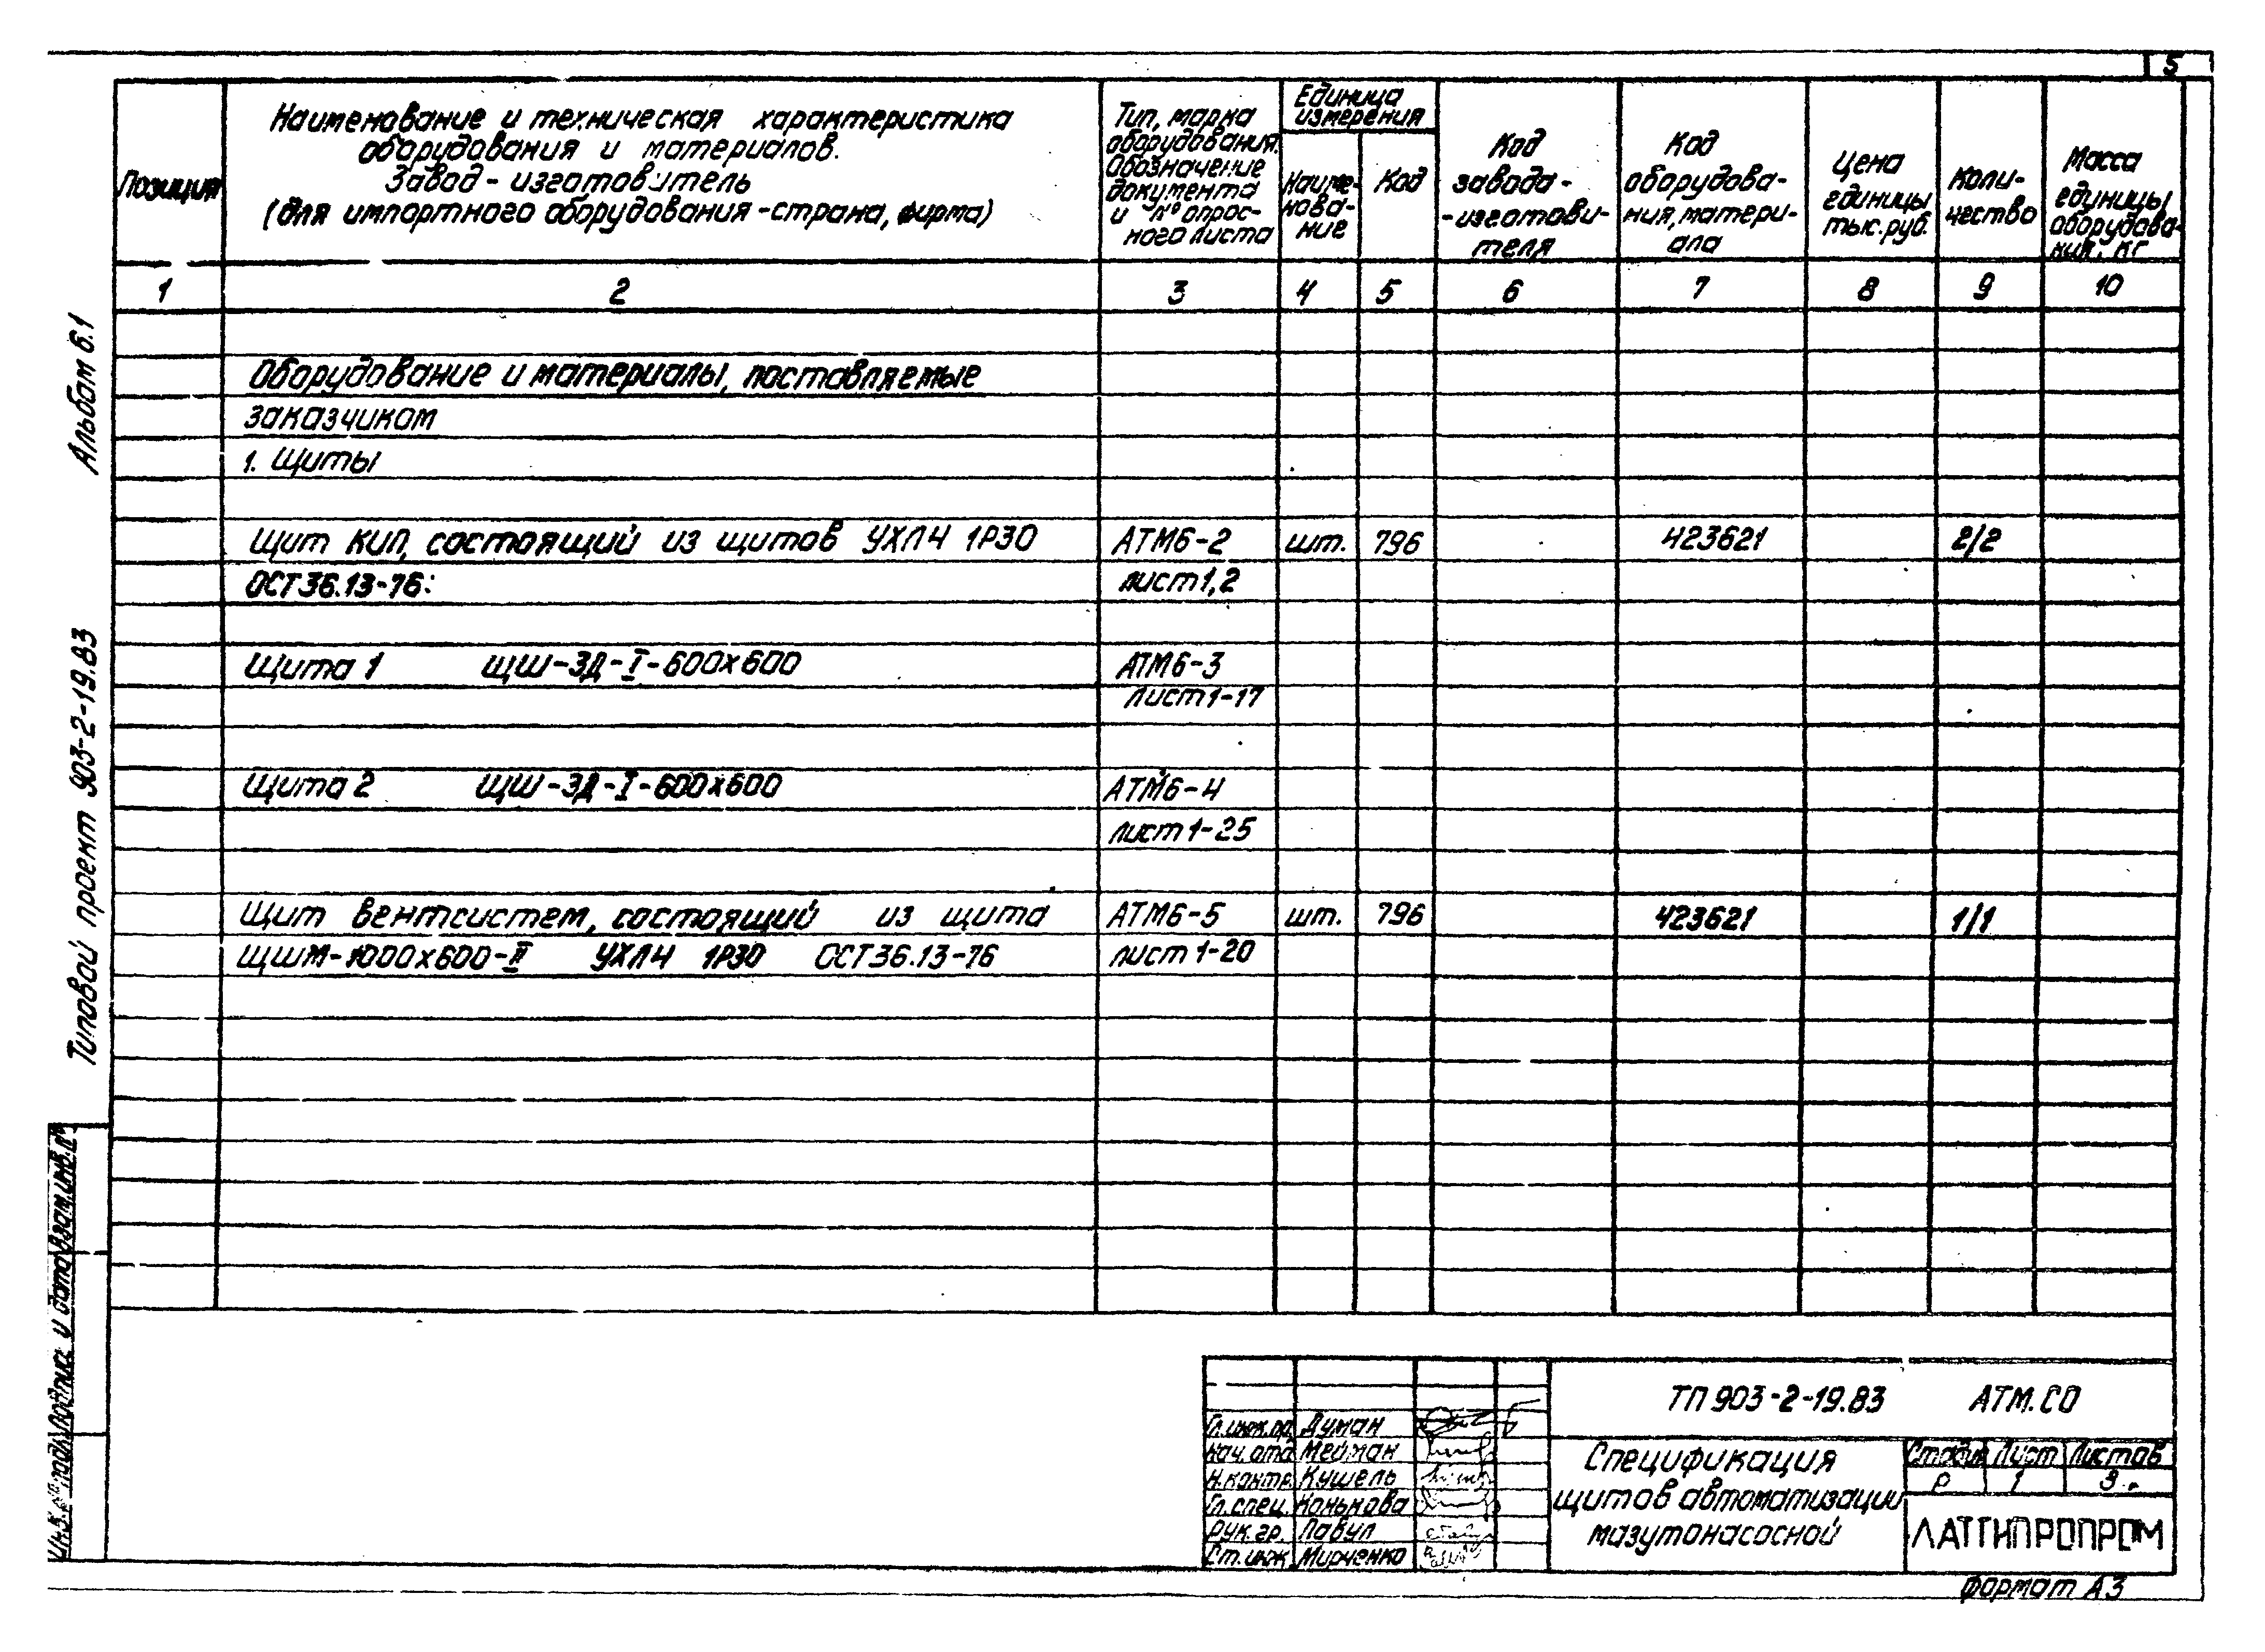 5
Позиция
Наименование и техническая характеристика
оборудования и материалов.
Завод - изготовитель
(для импортного оборудования - страна, фирма)
Тип, марка
оборудования.
Обозначение
документа
и № опрос-
ного листа
Единица
измерения
Наиме-
нова-
ние
Код
Код
завода-
-изготови-
теля
Код
оборудова-
ния, матери-
ала
Цена
единицы
тыс. руб.
Коли-
чество
Масса
единицы
оборудова-
ния, кг
1 2 3 4 5 6 7 8 9 10
Оборудование и материалы, поставляемые
заказчиком
1. Щиты
Щит КИП, состоящий из щитов УХЛ4 1Р30 АТМ6-2 шт. 796 423621 2/2
ОСТ36.13-76: лист 1,2
Щита 1 ЩШ-3Д-I-600х600 АТМ6-3
лист 1-17
Щита 2 ЩШ-3Д-I-600х600 АТМ6-4
лист 1-25
Щит вентсистем, состоящий из щита АТМ6-5 шт. 796 423621 1/1
ЩШМ-1000х600-II УХЛ4 1Р30 ОСТ36.13-76 лист 1-20
Альбом 6.1
Типовой проект 903-2-19.83
Инв. № подл. Подпись и дата Взам. инв. №
ТП 903-2-19.83 АТМ.СО
Гл. инж. пр. Думан
Нач. отд. Мейман
Н. контр. Кушель
Гл. спец. Конькова
Рук. гр. Павул
Ст. инж. Мирченко
Спецификация
щитов автоматизации
мазутонасосной
Стадия Лист Листов
Р 1 3
ЛАТГИПРОПРОМ
Формат А3